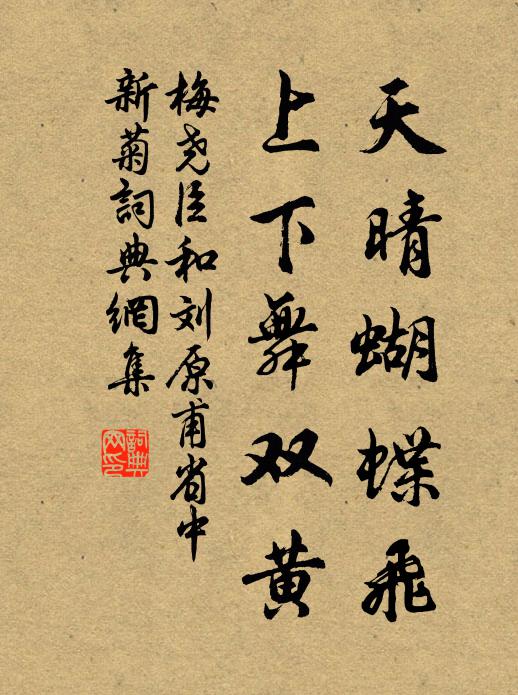 天晴蝴蝶飛
上下舞双黄
梅尧臣和刘原甫省中
新菊詞典網集
詞典网印